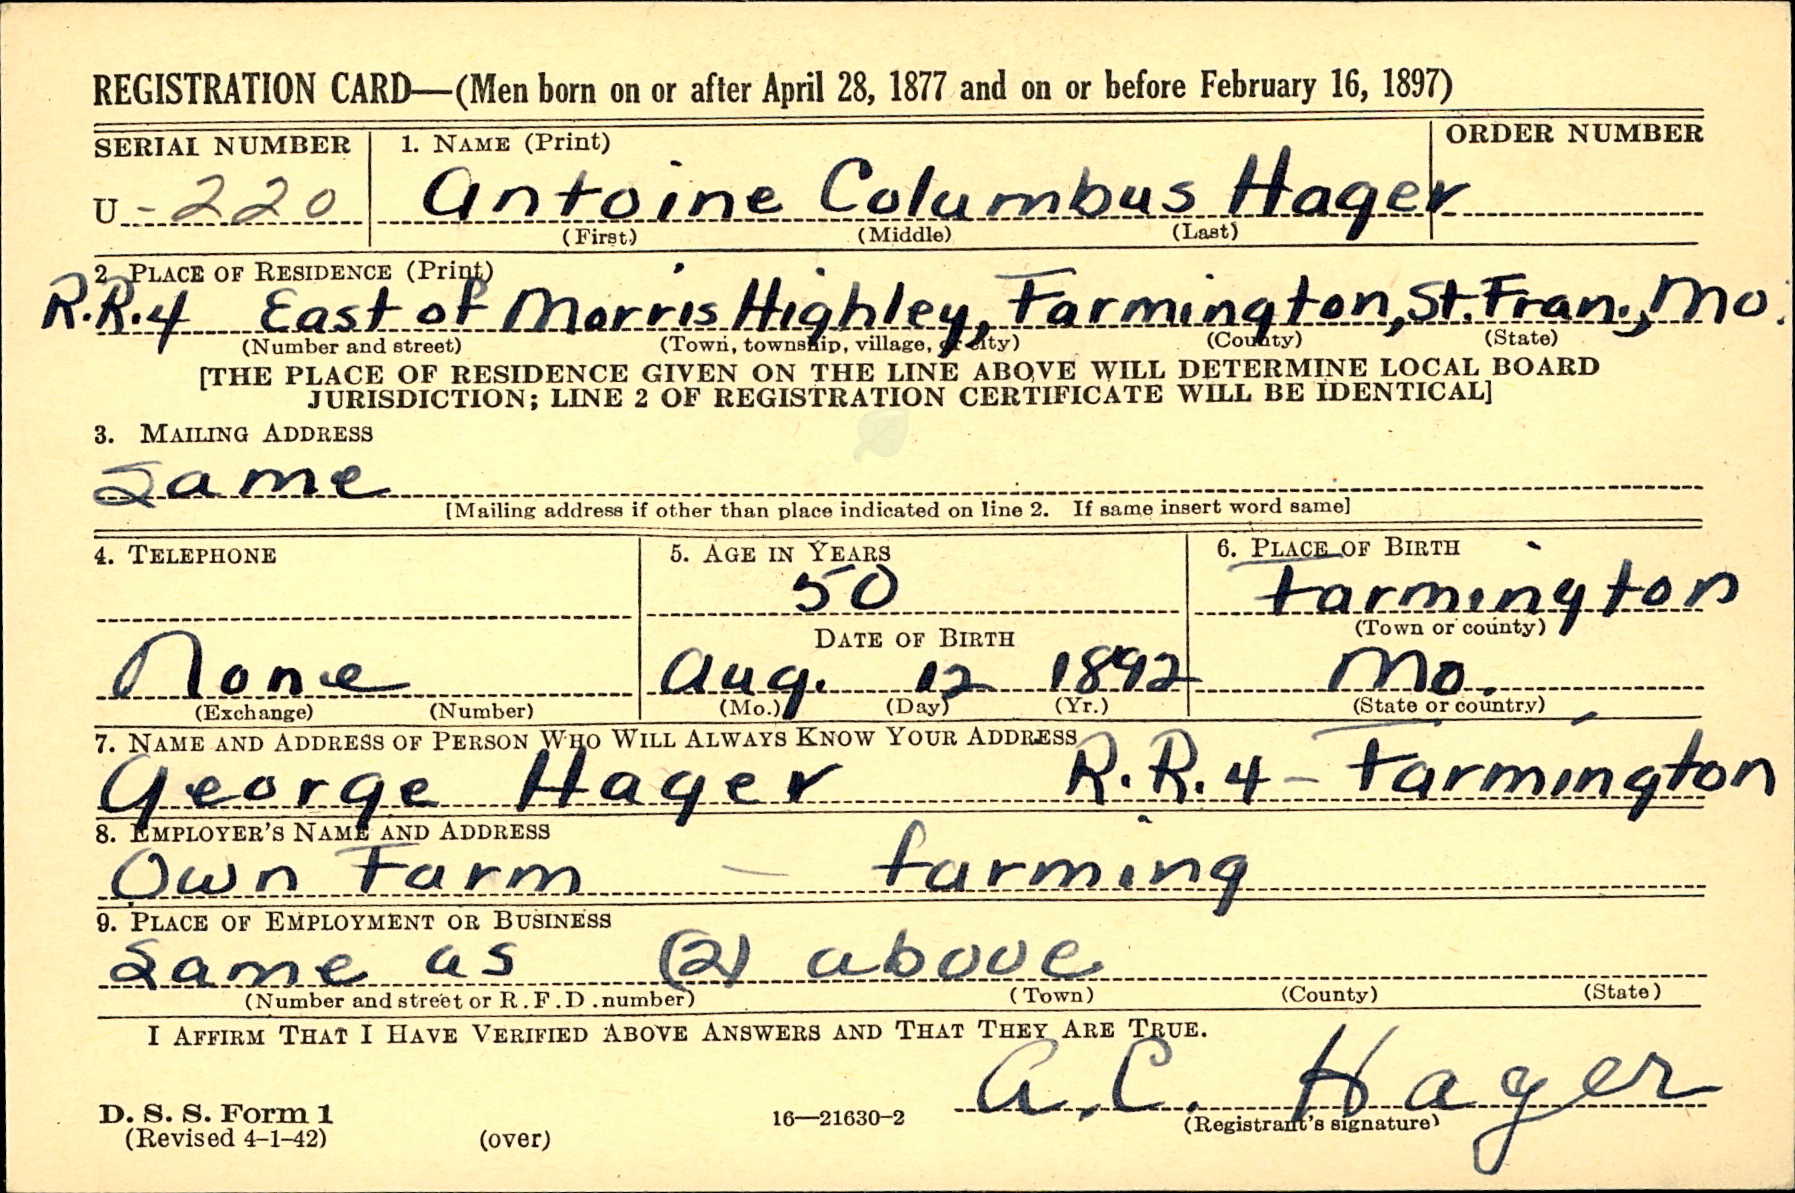 REGISTRATION CARD—(Men born on or after April 28, 1877 and on or before February 16, 1897)
SERIAL NUMBER 1. NAME (Print) ORDER NUMBER
U -220 Antoine Columbus Hager
(First) (Middle) (Last)
2. PLACE OF RESIDENCE (Print)
R.R.4 East of Morris Highley, Farmington, St. Fran., Mo.
(Number and street) (Town, township, village, or city) (County) (State)
[THE PLACE OF RESIDENCE GIVEN ON THE LINE ABOVE WILL DETERMINE LOCAL BOARD
JURISDICTION; LINE 2 OF REGISTRATION CERTIFICATE WILL BE IDENTICAL]
3. MAILING ADDRESS
Same
[Mailing address if other than place indicated on line 2. If same insert word same]
4. TELEPHONE 5. AGE IN YEARS 6. PLACE OF BIRTH
50 Farmington
DATE OF BIRTH (Town or county)
None Aug. 12 1892 Mo.
(Exchange) (Number) (Mo.) (Day) (Yr.) (State or country)
7. NAME AND ADDRESS OF PERSON WHO WILL ALWAYS KNOW YOUR ADDRESS
George Hager R.R.4 - Farmington
8. EMPLOYER'S NAME AND ADDRESS
Own Farm - farming
9. PLACE OF EMPLOYMENT OR BUSINESS
Same as (2) above
(Number and street or R.F.D. number) (Town) (County) (State)
I AFFIRM THAT I HAVE VERIFIED ABOVE ANSWERS AND THAT THEY ARE TRUE.
A. C. Hager
D. S. S. Form 1 16—21630-2 (Registrant's signature)
(Revised 4-1-42) (over)